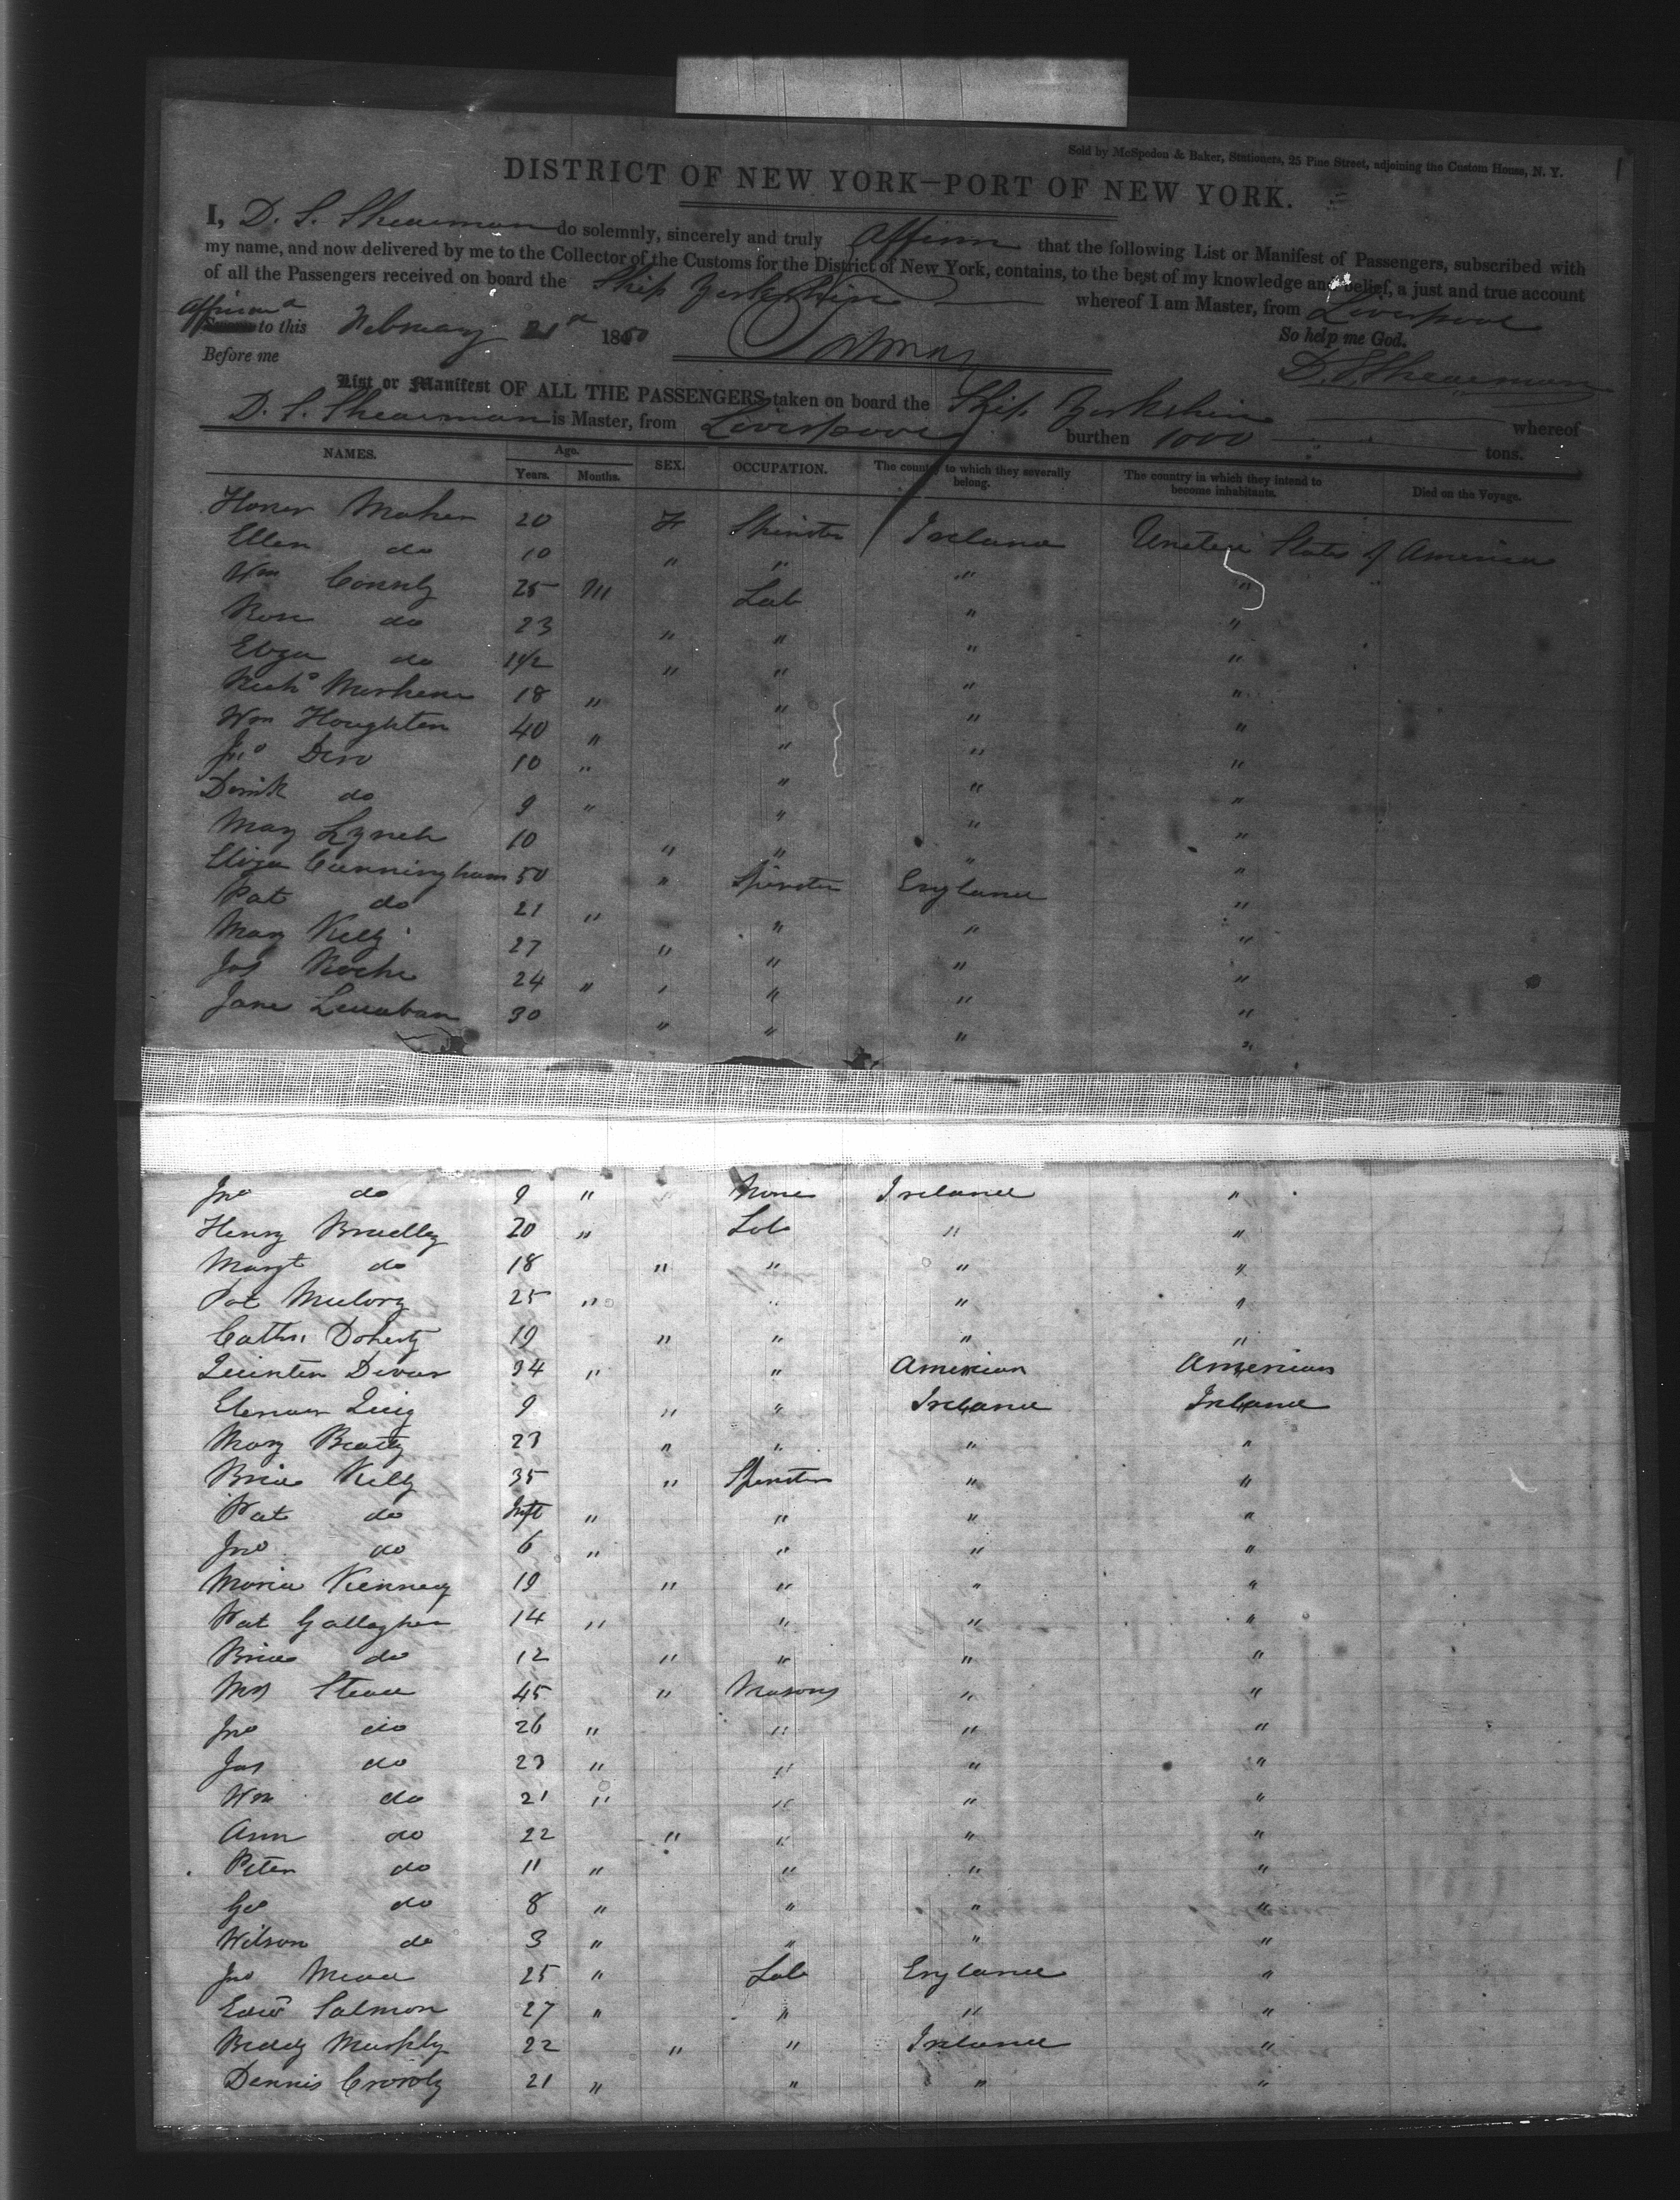 Sold by McSpedon & Baker, Stationers, 25 Pine Street, adjoining the Custom House, N. Y.
1
DISTRICT OF NEW YORK—PORT OF NEW YORK.
I, D. S. Shearman do solemnly, sincerely and truly Affirm that the following List or Manifest of Passengers, subscribed with
my name, and now delivered by me to the Collector of the Customs for the District of New York, contains, to the best of my knowledge and belief, a just and true account
of all the Passengers received on board the Ship Yorkshire whereof I am Master, from Liverpool
Affirmd to this February 21st 1850 So help me God.
Before me D. S. Shearman
List or Manifest OF ALL THE PASSENGERS taken on board the Ship Yorkshire whereof
D. S. Shearman is Master, from Liverpool burthen 1000 tons.
NAMES. Age. Years. Months. SEX. OCCUPATION. The country to which they severally belong. The country in which they intend to become inhabitants. Died on the Voyage.
Honer Maher 20 F Spinster Ireland United States of America
Ellen do 10 " " " "
Wm Connly 25 M Lab " "
Rose do 23 " " " "
Eliza do 1 1/2 " " " "
Richd 18 " " " "
Wm Houghten 40 " " " "
Jno 10 " " " "
do 9 " " " "
Mary Lynch 10 " " " "
Eliza Cunningham 50 " Spinster England "
Pat do 21 " " " "
Mary Kelly 27 " " " "
Jas Roche 24 " " " " "
Jane 30 " " " "
Jno do 9 " None Ireland "
Henry Bradley 20 " Lab " "
Margt do 18 " " " "
Pat 25 " " " "
Cathe Doherty 19 " " " "
Quinten 34 " " American American
Elenaer Quig 9 " " Ireland Ireland
Mary Beatty 23 " " " "
Kelly 35 " Spinster " "
Pat do Inft " " " "
Jno do 6 " " " "
Maria Kennedy 19 " " " "
Pat Gallagher 14 " " " "
do 12 " " " "
Mrs 45 " Masons " "
Jno do 26 " " " "
Jas do 23 " " " "
Wm do 21 " " " "
Ann do 22 " " " "
Peter do 11 " " " "
Geo do 8 " " " "
Wilson do 3 " " " "
Jno Mead 25 " Lab England "
Edwd Salmon 27 " " " "
Biddy Murphy 22 " " Ireland "
Dennis Crowly 21 " " " "